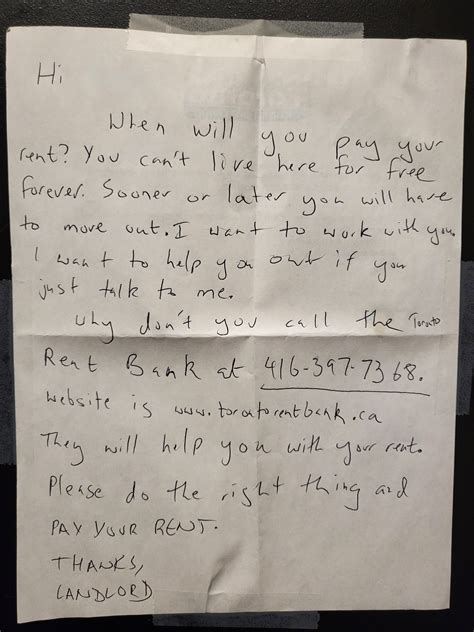 Hi
When will you pay your
rent? You can't live here for free
forever. Sooner or later you will have
to move out. I want to work with you.
I want to help you out if you
just talk to me.
Why don't you call the Toronto
Rent Bank at 416-397-7368.
website is www.torontorentbank.ca
They will help you with your rent.
Please do the right thing and
PAY YOUR RENT.
THANKS,
LANDLORD